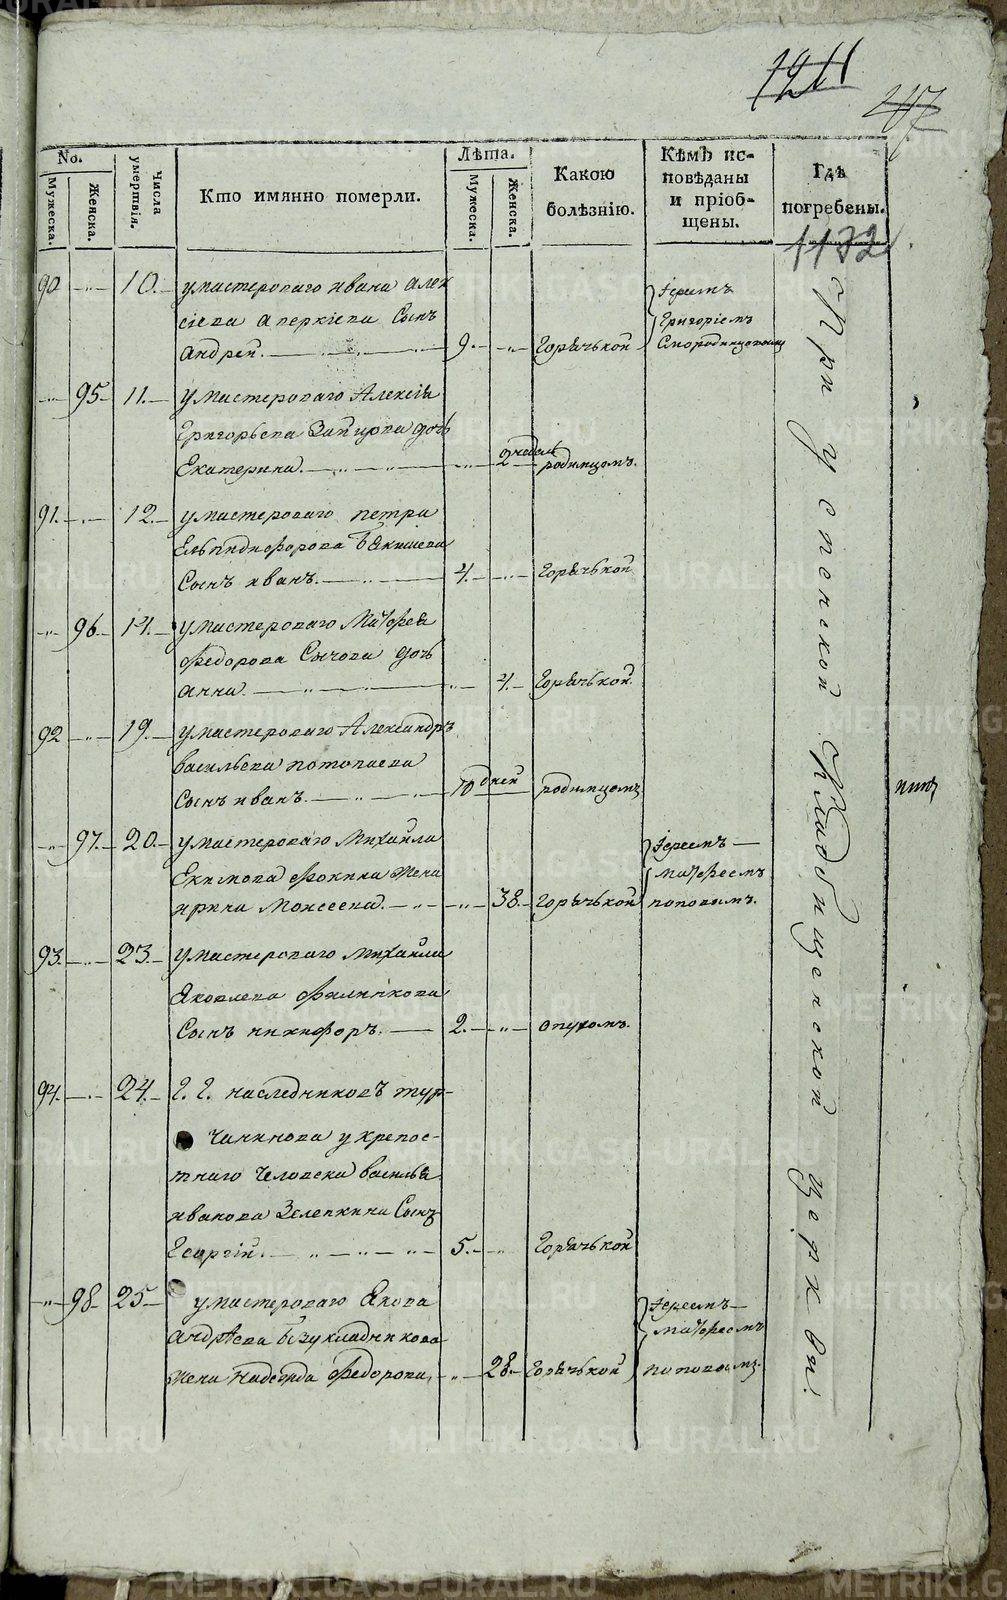 1211
No.
Мужеска.
Женска.
Числа умертвія.
Кто имянно померли.
Лѣта.
Мужеска.
Женска.
Какою
болѣзнію.
Кѣмъ ис-
повѣданы
и пріоб-
щены.
Гдѣ
погребены.
1132
90 — „ — 10. — умастероваго ивана алек
сіева аверкіева Сынъ
андрей. — „ — 9. — „ — Горячькой
Іереемъ
Григоріемъ
Смородинцовымъ
— „ — 95 — 11. — умастероваго Алексія
Григорьева дочь
Екатерина. — „ — 2 недель родимцомъ.
91. — „ — 12. — умастероваго петра
Елпидифорова Бякишева
Сынъ иванъ. — „ — 4. — „ — Горячькой
— „ — 96 — 14. — умастероваго Матфея
Федорова Сычова дочь
анна. — „ — 4. — Горячькой.
92 — „ — 19. — умастероваго Александръ
васильева потопаева
Сынъ иванъ. — „ — 10 дней родимцомъ
— „ — 97. — 20. — умастероваго михаила
Екимова фокина жена
ирина Моисеева. — „ — 38. — Горячькой
Іереемъ —
матфеемъ
поповымъ.
93. — „ — 23. — умастероваго михаила
Яковлева
Сынъ никифоръ. — 2. — „ — опухомъ.
94. — „ — 24. — Г. Г. наследниковъ тур-
чанинова у крепос-
тнаго человека василья
иванова Зелепкина Сынъ
Георгій. — „ — „ — 5. — „ Горячькой
— „ — 98 — 25 — умастероваго Якова
андрѣева Безукладникова
жена надежда федорова, — „ — 28. — Горячькой
Іереемъ —
матфеемъ
поповымъ.
При успенской Кладбищенской церкви.
METRIKI.GASO-URAL.RU